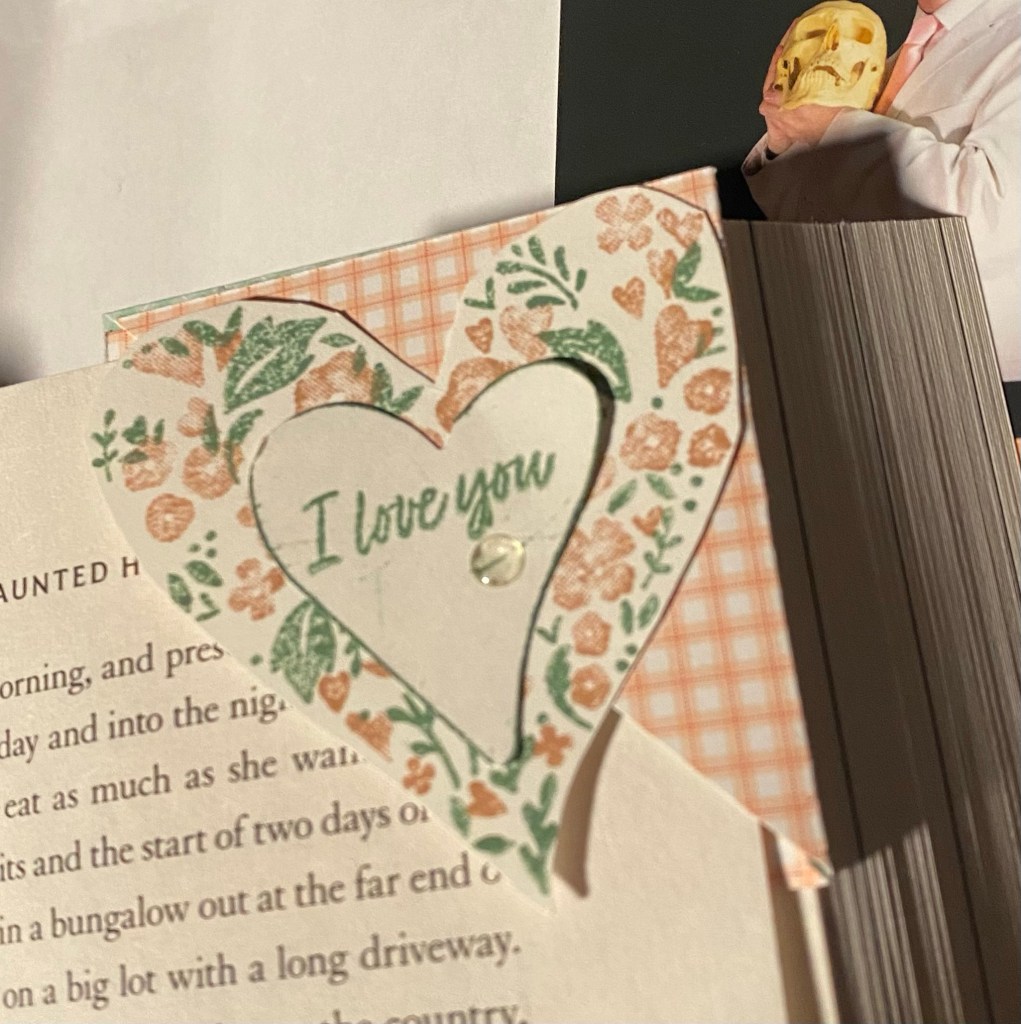 I love you
AUNTED H
orning, and pres
day and into the nig
eat as much as she wan
its and the start of two days o
in a bungalow out at the far end o
on a big lot with a long driveway.
the country.